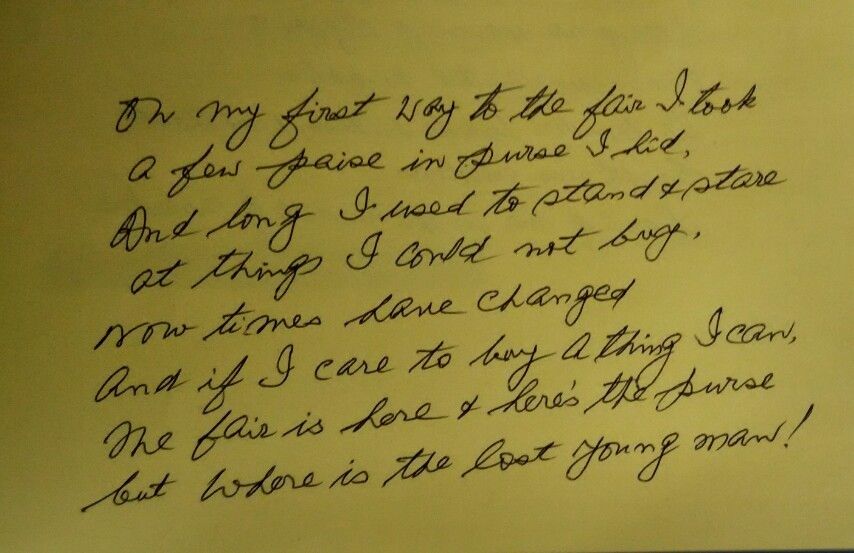 On my first way to the fair I took
a few paise in purse I hid,
And long I used to stand & stare
at things I could not buy,
Now times have changed
And if I care to buy a thing I can,
The fair is here & here's the purse
but where is the lost young man!